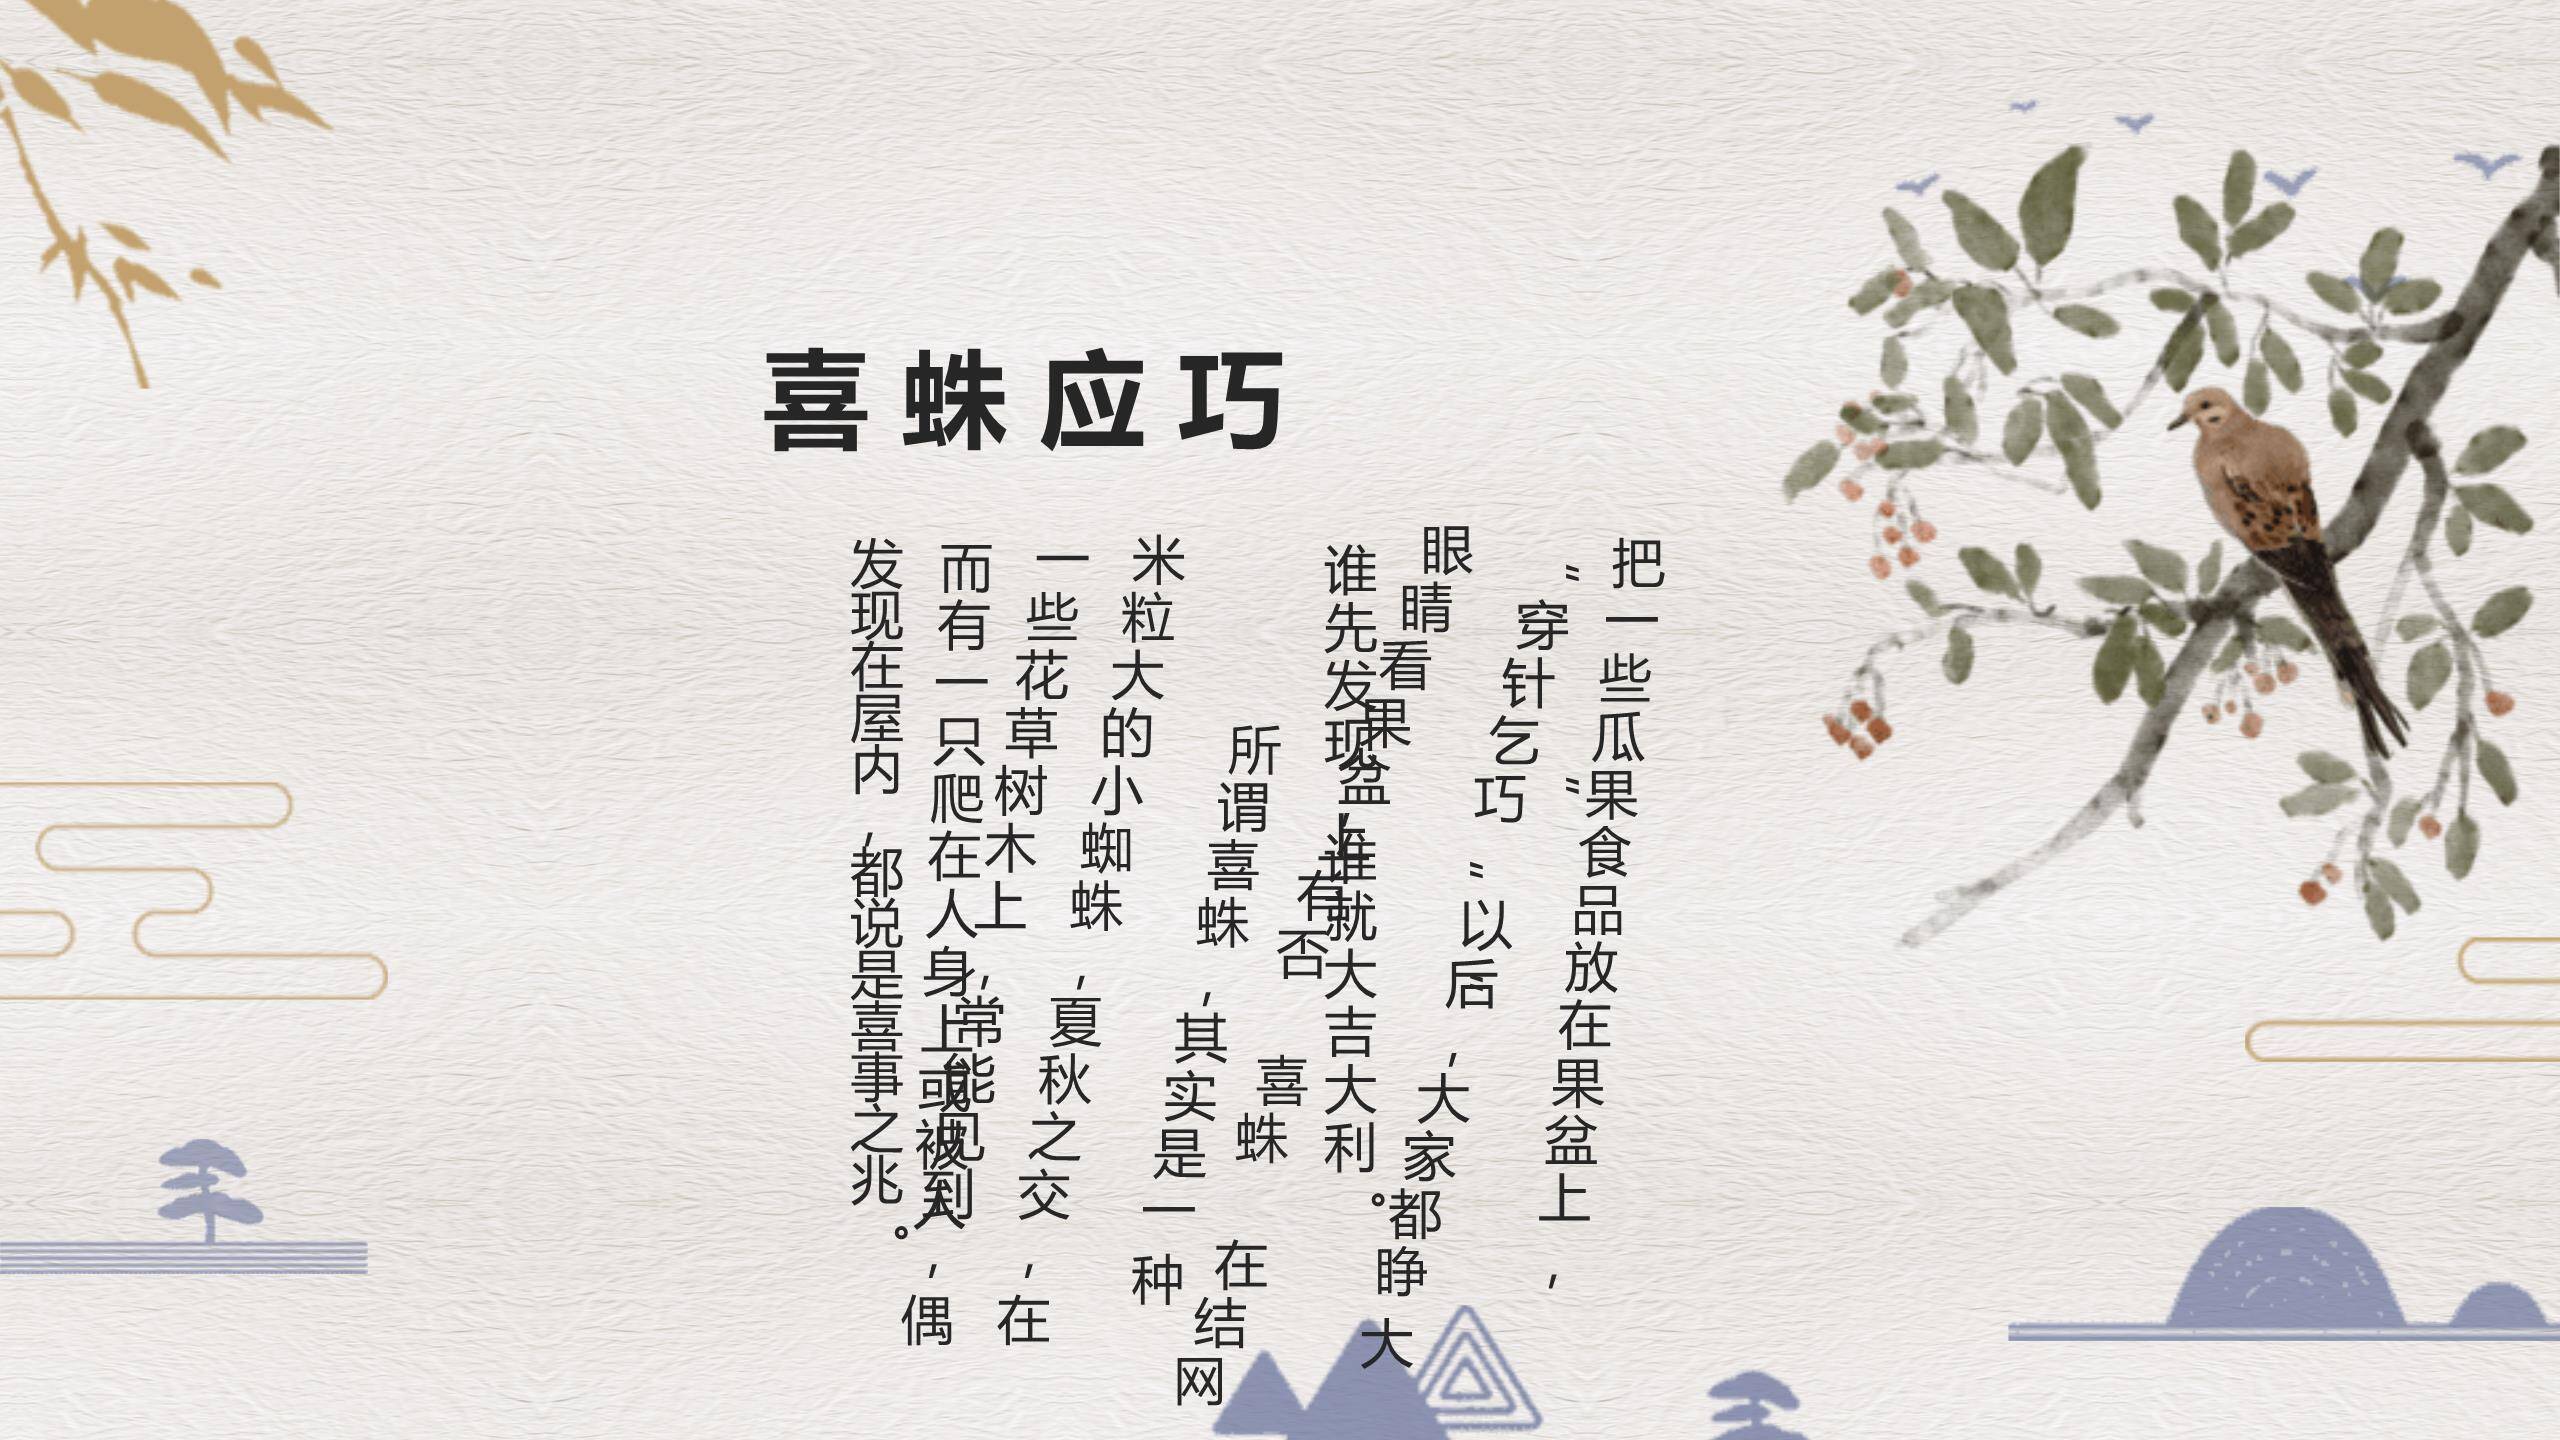 喜蛛应巧
把一些瓜果食品放在果盆上，
“穿针乞巧”以后，大家都睁大
眼睛看果盆上有否喜蛛在结网
谁先发现，谁就大吉大利。
所谓喜蛛，其实是一种
米粒大的小蜘蛛，夏秋之交，在
一些花草树木上，常能见到，偶
而有一只爬在人身上或被人
发现在屋内，都说是喜事之兆。